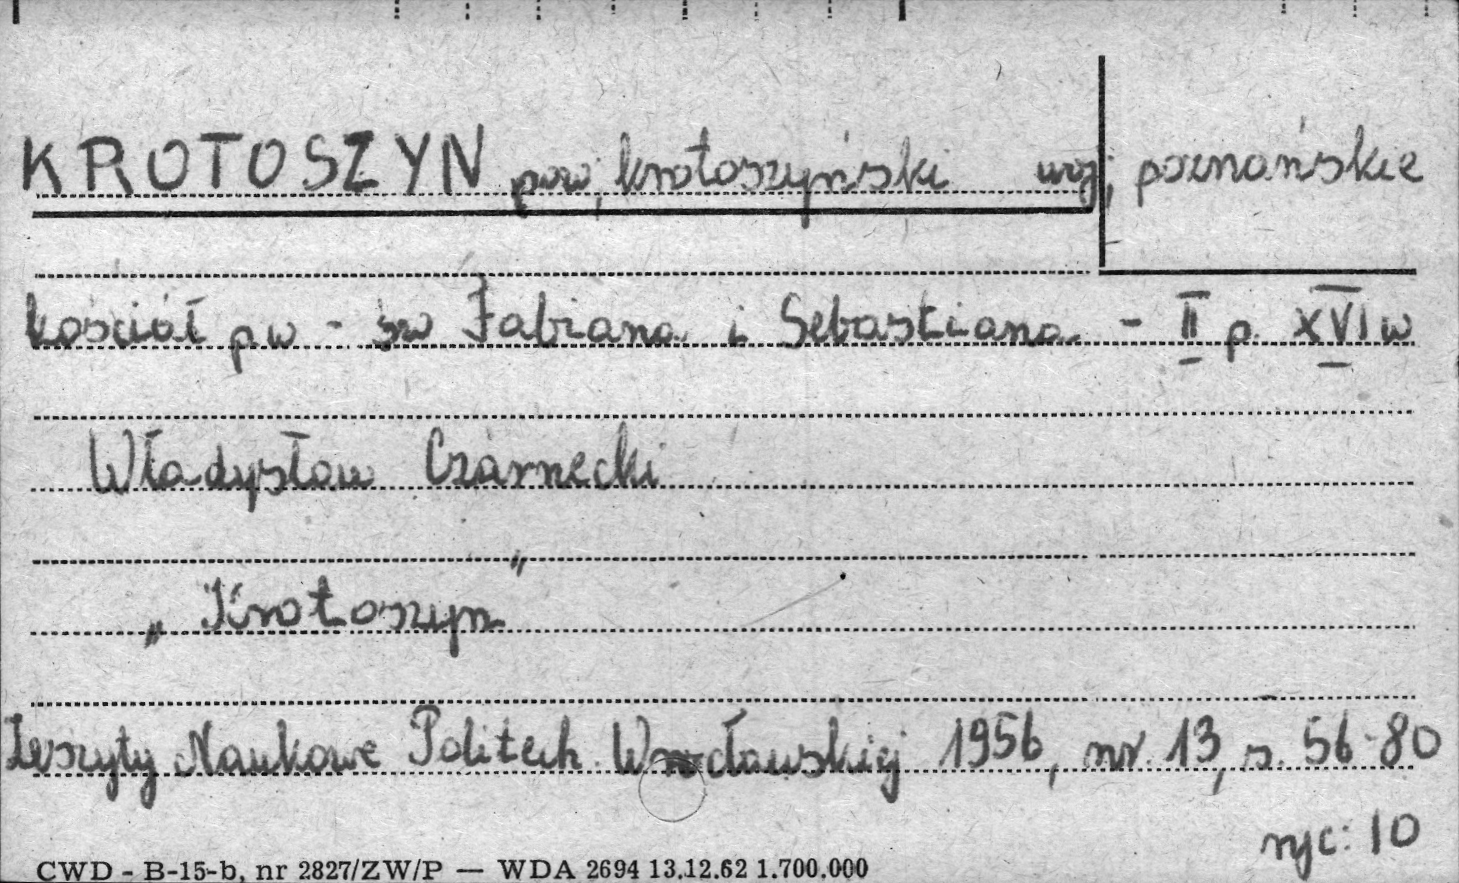 KROTOSZYN pow, krotoszyński woj, poznańskie
kościół pw - św Fabiana i Sebastiana - II p. XVI w
Władysław Czarnecki
„Krotoszyn"
Zeszyty Naukowe Politech. Wrocławskiej 1956, nr. 13, s. 56-80
ryc: 10
CWD - B-15-b, nr 2827/ZW/P — WDA 2694 13.12.62 1.700.000